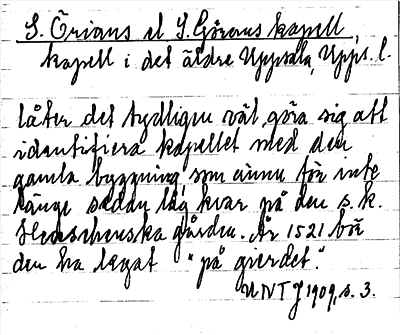 S. Örians el S. Görans kapell,
kapell i det äldre Uppsala, Upps. l.
låter det tydligen väl göra sig att
identifiera kapellet med den
gamla byggning, som ännu för inte
länge sedan låg kvar på den s. k.
Henschenska gården. År 1521 bör
den ha legat "på gierdet".
UNT J 1909, s. 3.